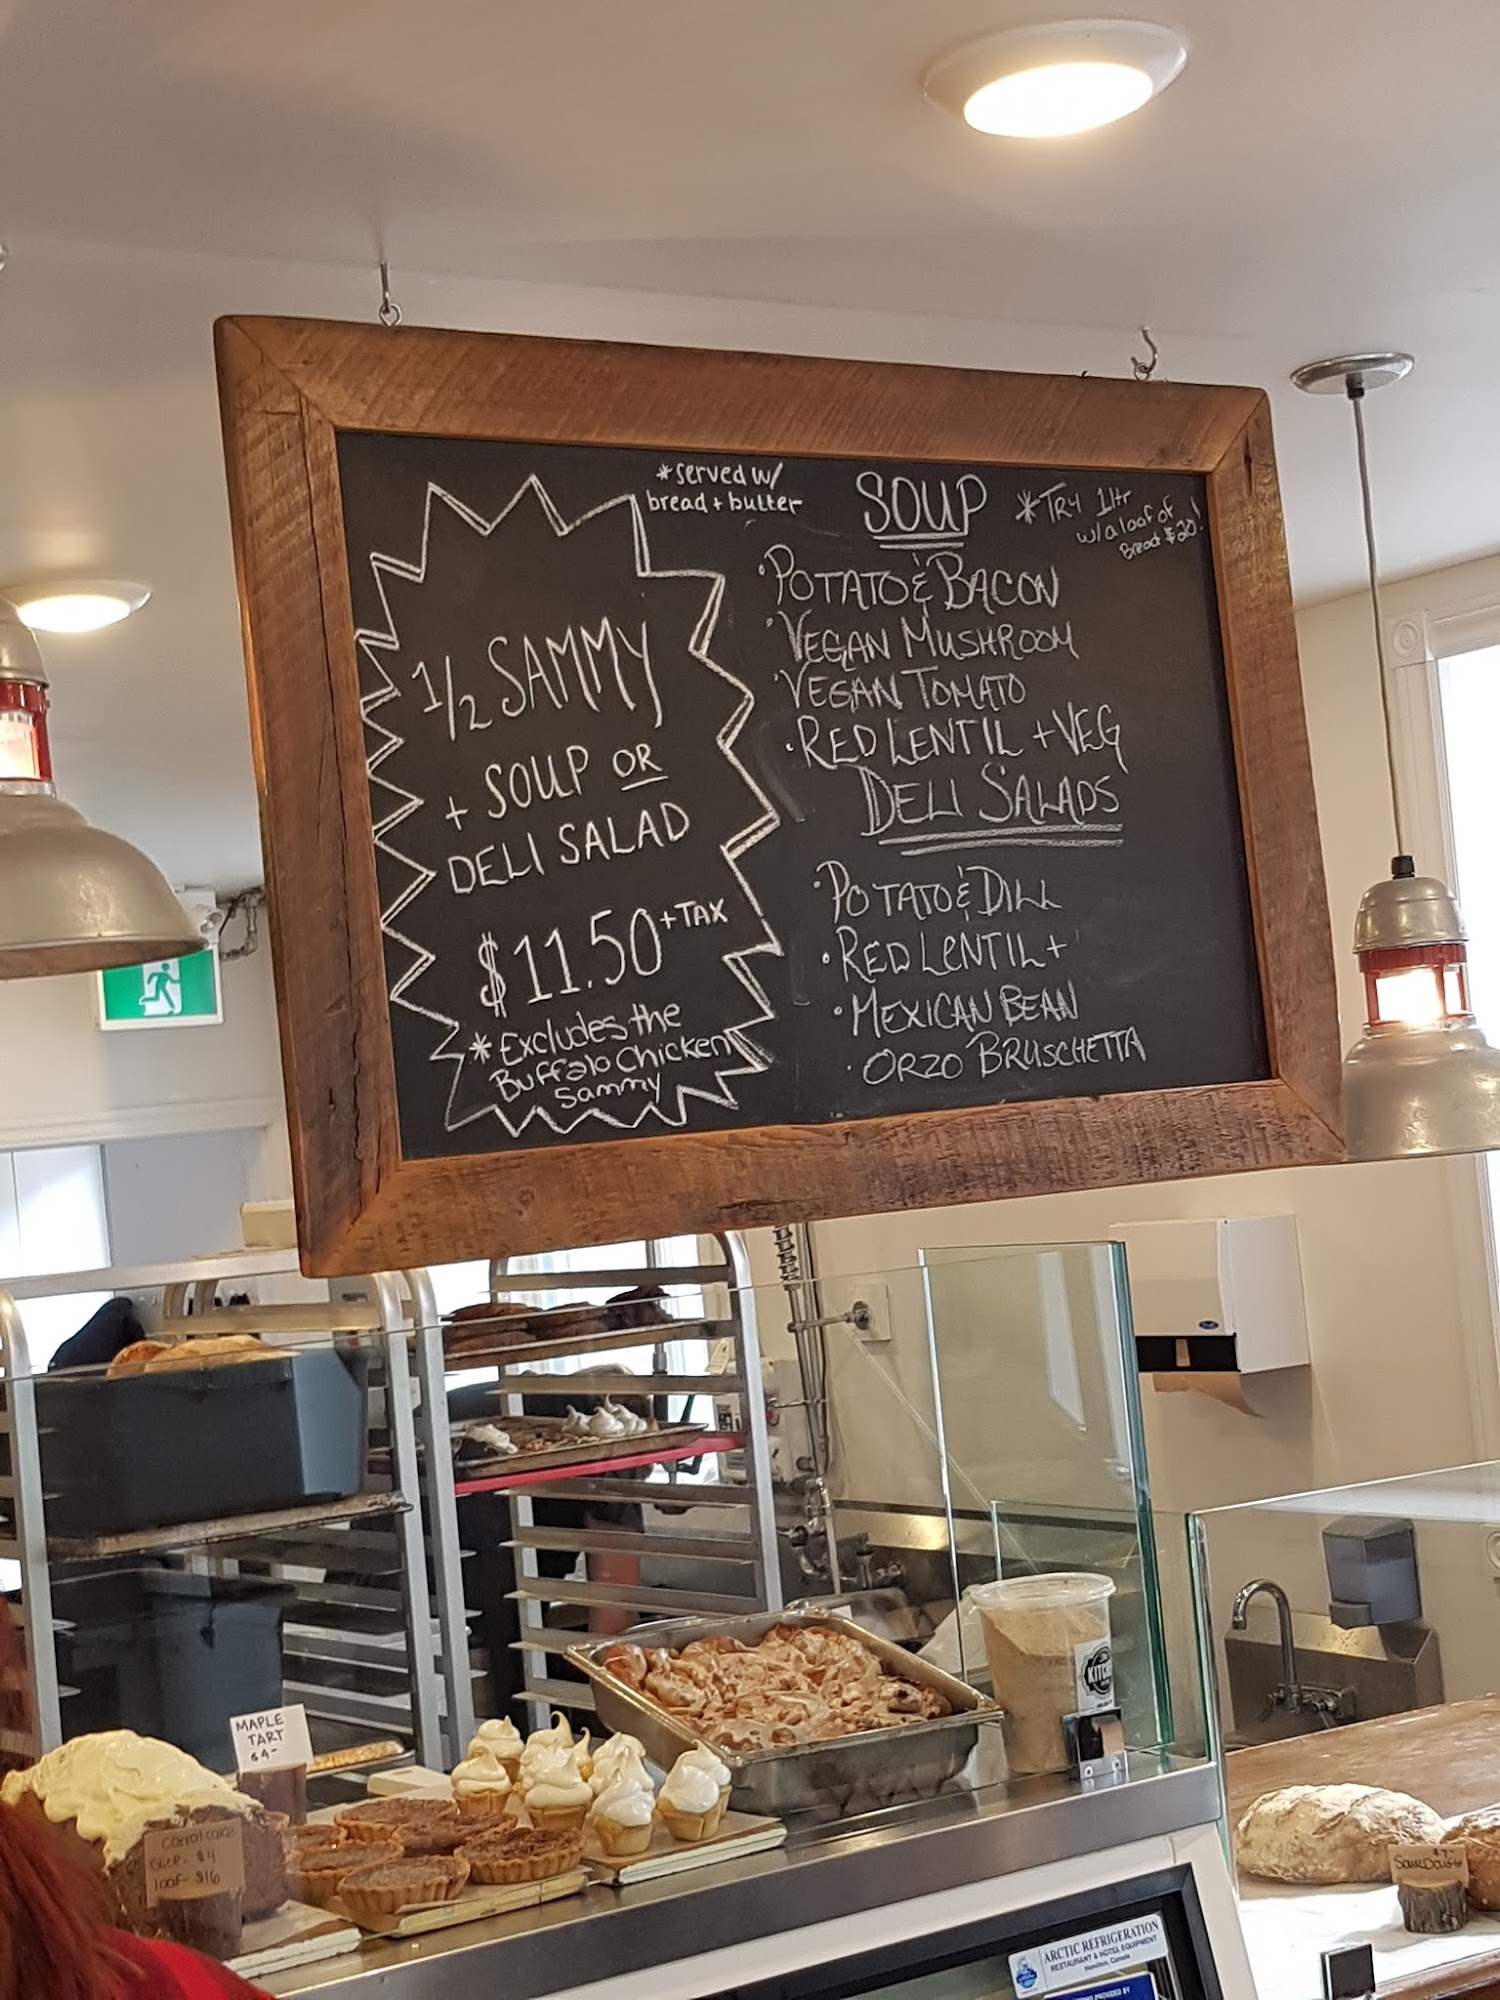 *served w/
bread + butter
1/2 SAMMY
+ SOUP OR
DELI SALAD
$11.50 + TAX
* Excludes the
Buffalo Chicken
Sammy
SOUP
*TRY 1ltr
w/ a loaf of
Bread $20!
·POTATO & BACON
·VEGAN MUSHROOM
·VEGAN TOMATO
·RED LENTIL + VEG
DELI SALADS
·POTATO & DILL
·RED LENTIL +
·MEXICAN BEAN
·ORZO BRUSCHETTA
MAPLE
TART
$4-
carrot cake
slice - $4
loaf - $16
KITCHEN
SOURDOUGH
$7-
ARCTIC REFRIGERATION
RESTAURANT & HOTEL EQUIPMENT
Hamilton, Canada
PROVIDED BY